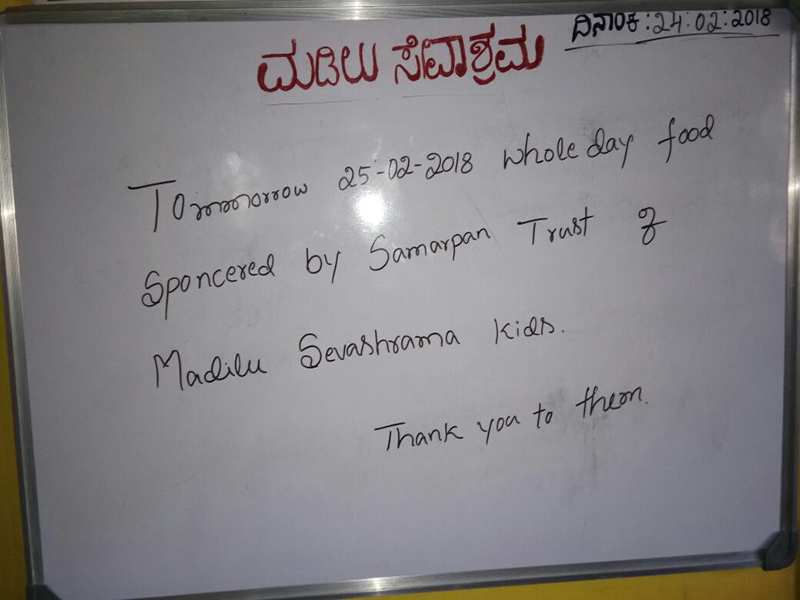 ದಿನಾಂಕ:24:02:2018
ಮಡಿಲು ಸೇವಾಶ್ರಮ
Tommorrow 25-02-2018 whole day food
Sponcered by Samarpan Trust
Madilu Sevashrama kids.
Thank you to them.